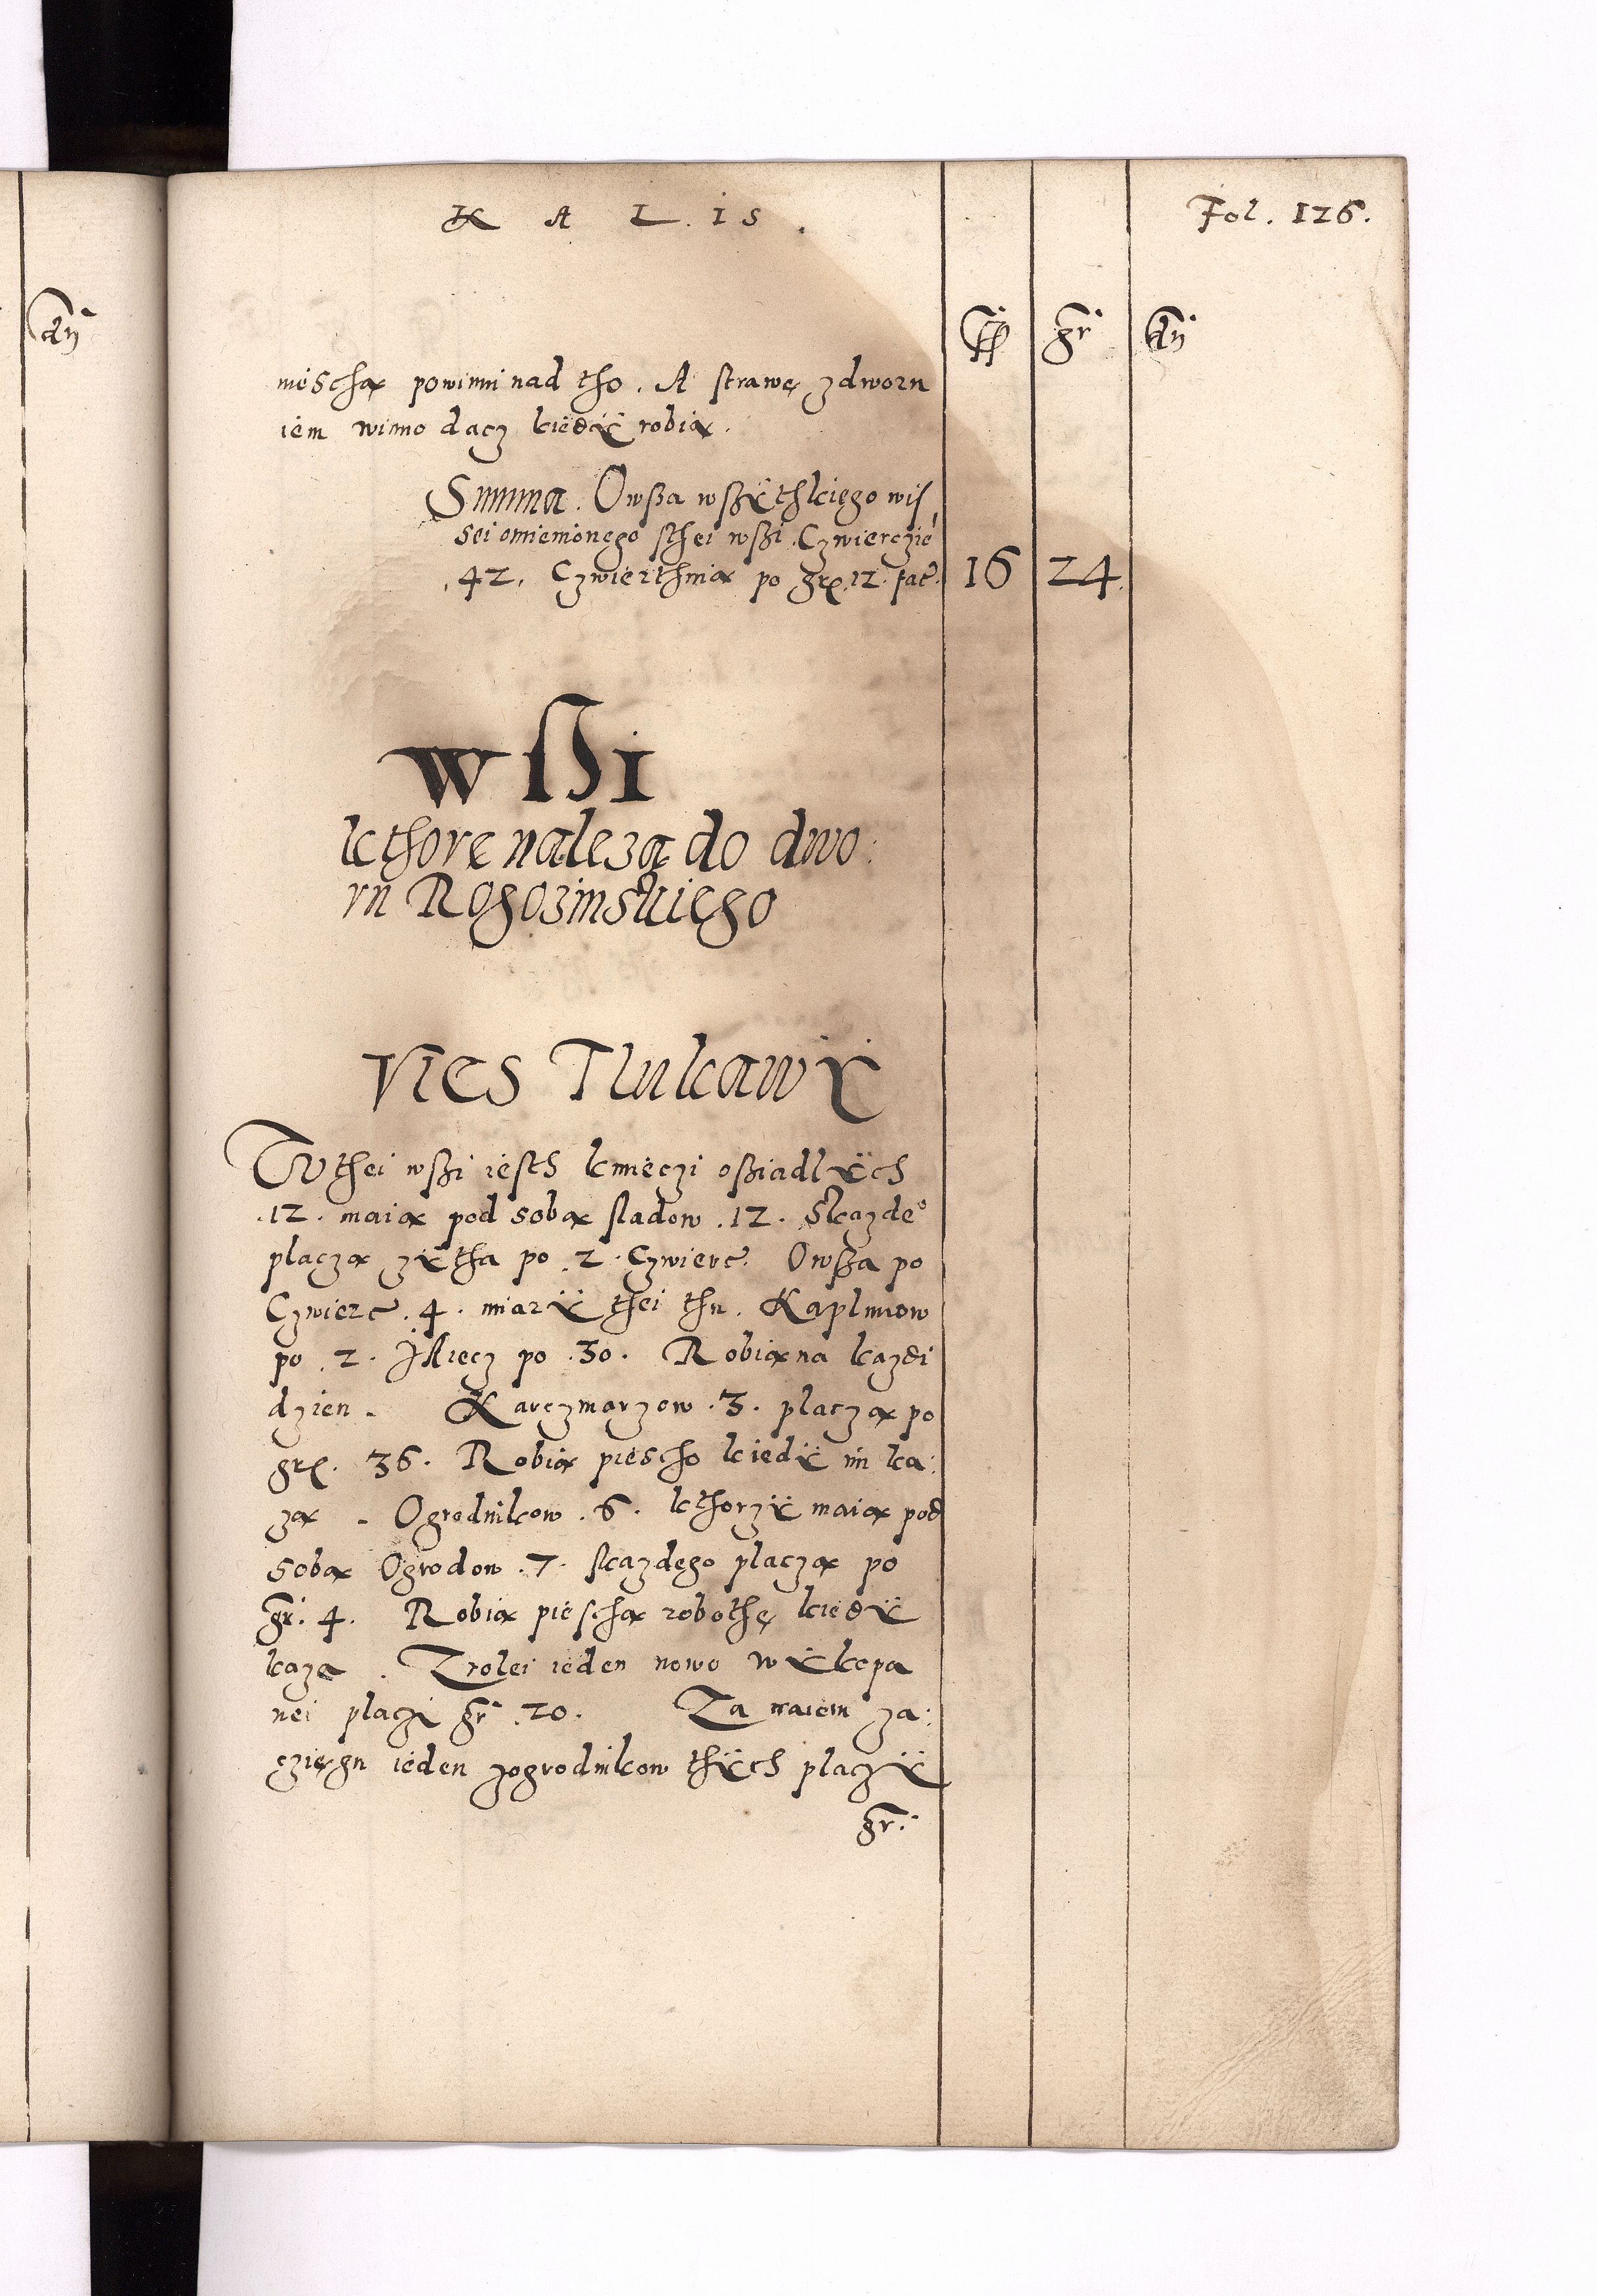 K A L I S.
Fol. 126.
fl gr dn
dn
miescha powinni nad tho. A strawę zdworu
iem winno dacz kiedÿ robia.
Summa. Owßa wßÿthkiego wis
sei omienionego sthei wßi. Czwierczie
.42. Czwierthnia po grͦ. 12. fac. 16 24.
Wßi
kthore naleza do dwo:
ru Rogozinskiego
Vies Tlukawÿ
W thei wßi iesth kmieczi oßiadlÿch
.12. maia pod soba sladow .12. Skazde°
placza zÿtha po .2. Czwierc. Owßa po
Czwierc .4. miarÿ thei thu. Kaplunow
po .2. Jaiecz po .30. Robia na kazdi
dzien. Karczmarzow .3. placza po
gr. 36. Robia piescho kiedÿ im ka:
za. Ogrodnikow .6. kthorzÿ maia pod
soba Ogrodow .7. skazdego placza po
gr. 4. Robia piescha robothę kiedÿ
kaza. Zrolei ieden nowo wÿkopa
nei placzi gr .20. Za naiem za:
cziegu ieden zogrodnikow thÿch placzÿ
gr.